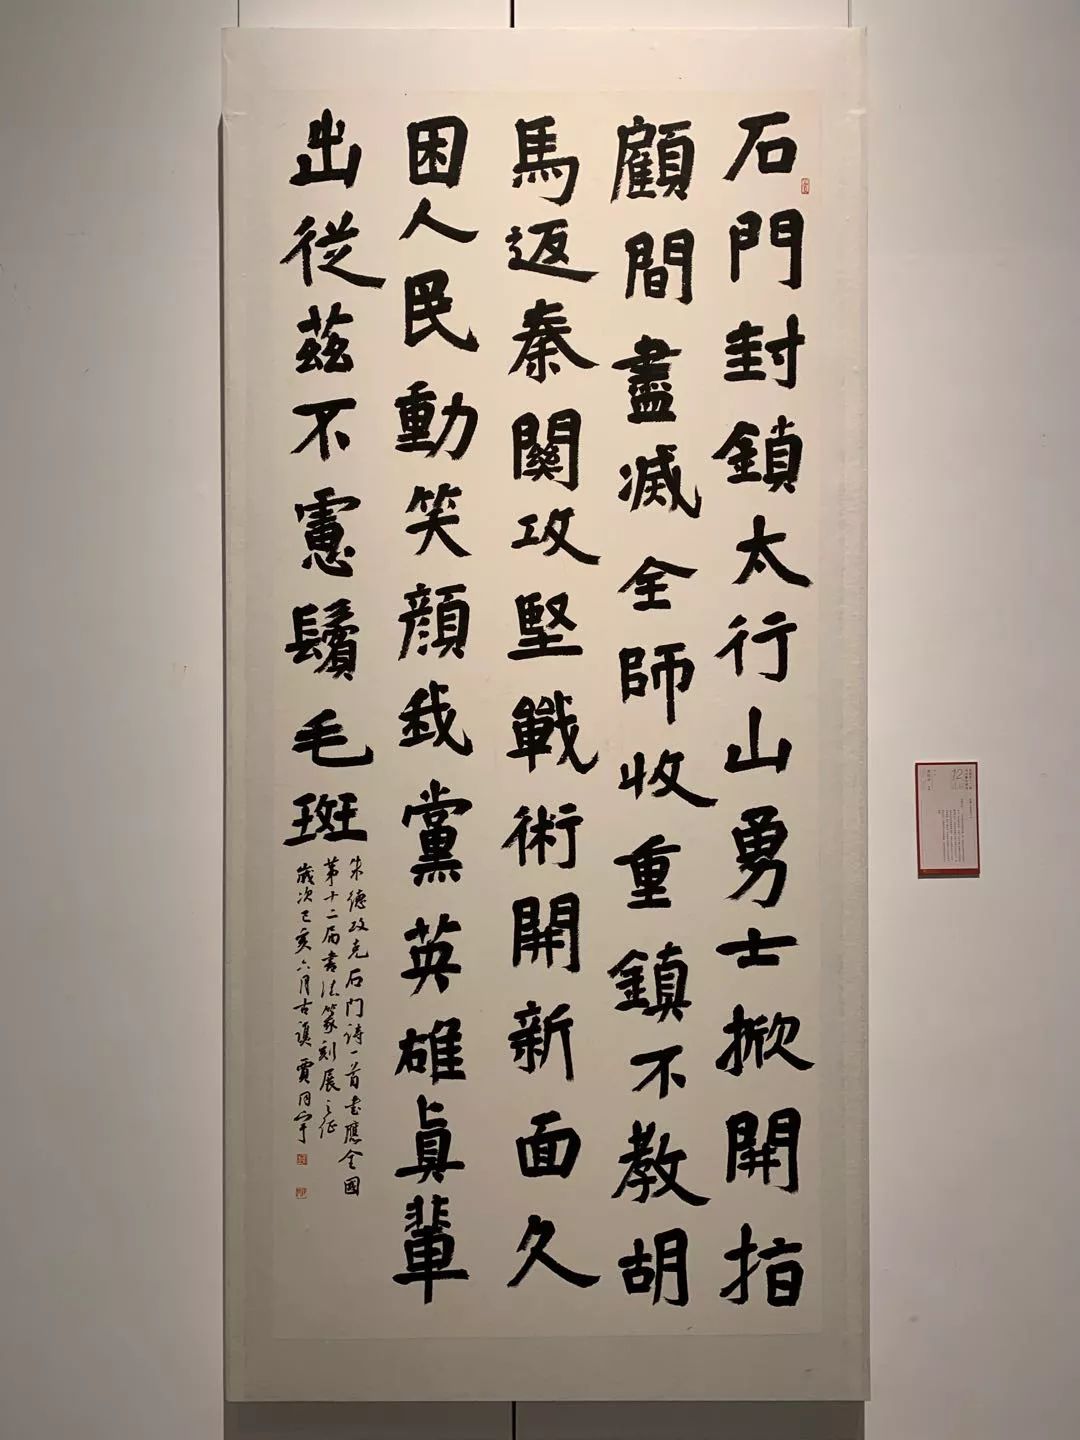 石門封鎖太行山勇士掀開指
顧間盡滅全師收重鎮不教胡
馬返秦關攻堅戰術開新面久
困人民動笑顏我黨英雄真輩
出從茲不慮鬢毛斑
朱德攻克石门诗一首书應全國
第十二届書法篆刻展之征
歲次己亥六月古 賈同宇
12